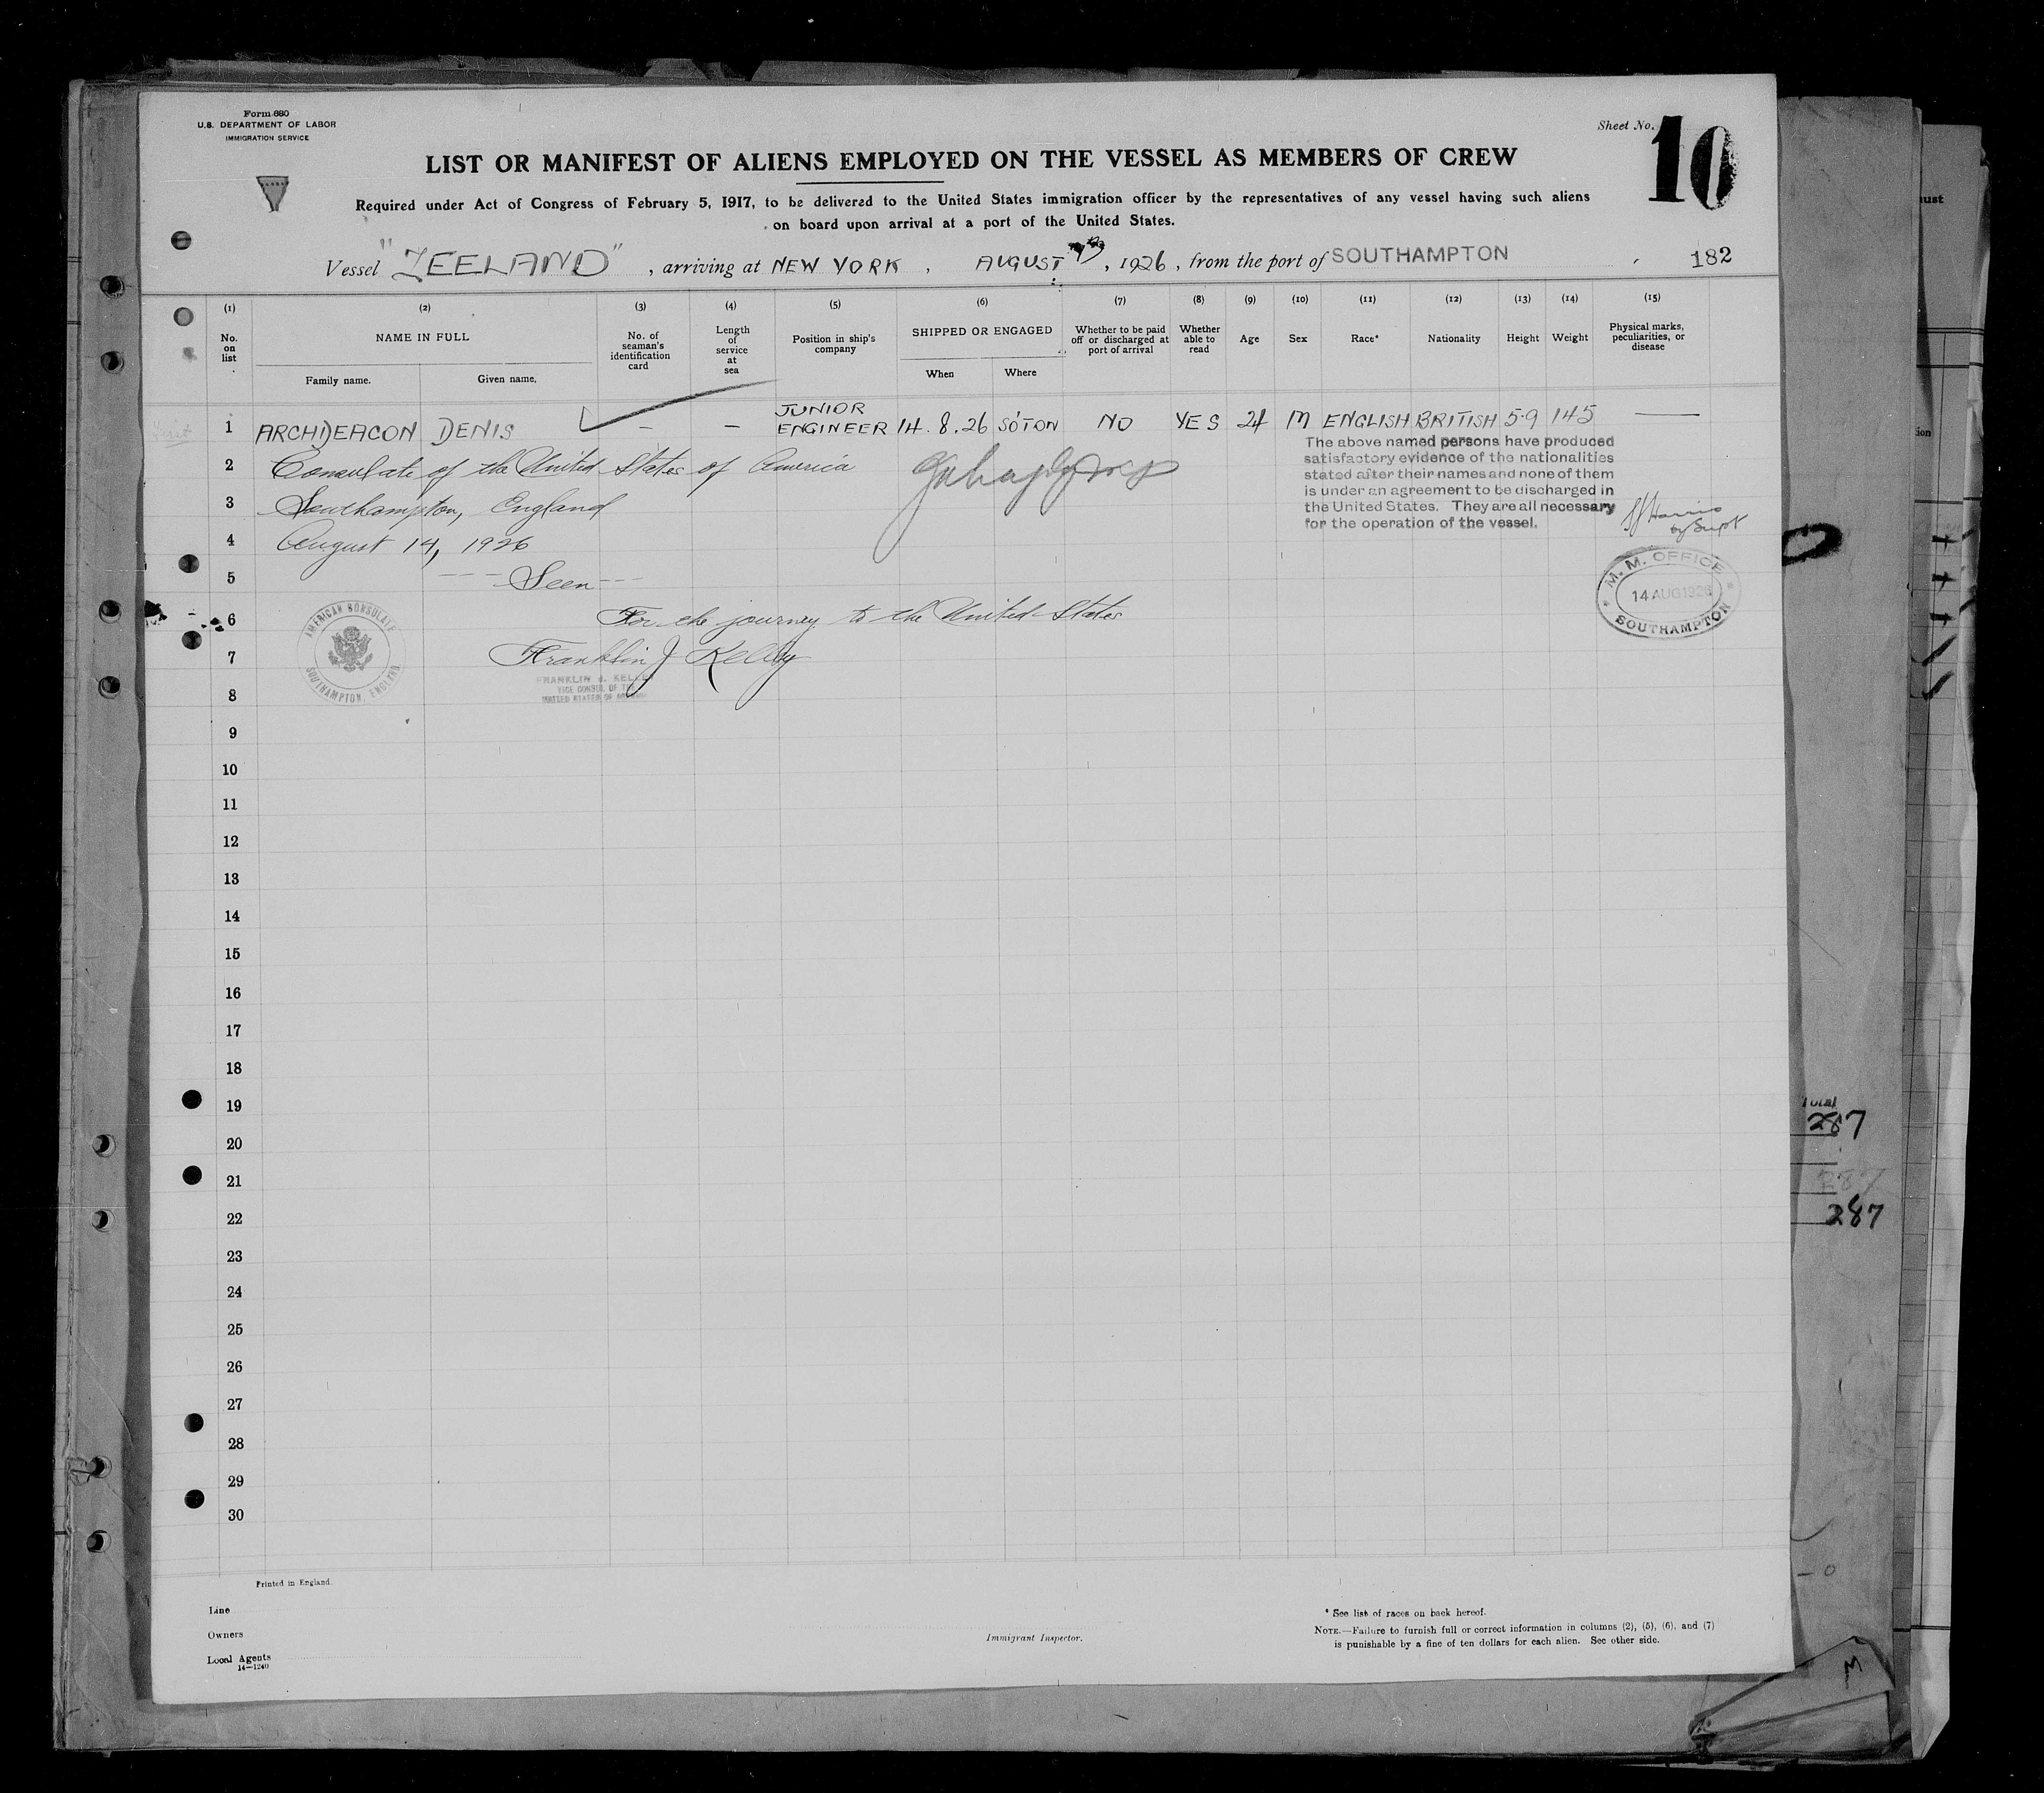 Form 680
U.S. DEPARTMENT OF LABOR
IMMIGRATION SERVICE
Sheet No. 10
LIST OR MANIFEST OF ALIENS EMPLOYED ON THE VESSEL AS MEMBERS OF CREW
Required under Act of Congress of February 5, 1917, to be delivered to the United States immigration officer by the representatives of any vessel having such aliens
on board upon arrival at a port of the United States.
Vessel "ZEELAND", arriving at NEW YORK, AUGUST, 1926, from the port of SOUTHAMPTON 182
(1) (2) (3) (4) (5) (6) (7) (8) (9) (10) (11) (12) (13) (14) (15)
No. on list
NAME IN FULL
Family name. Given name.
No. of seaman's identification card
Length of service at sea
Position in ship's company
SHIPPED OR ENGAGED
When Where
Whether to be paid off or discharged at port of arrival
Whether able to read
Age
Sex
Race*
Nationality
Height
Weight
Physical marks, peculiarities, or disease
1 ARCHDEACON DENIS — — JUNIOR ENGINEER 14.8.26 SO'TON NO YES 24 M ENGLISH BRITISH 5-9 145 —
2 Consulate of the United States of America
3 Southampton, England
4 August 14, 1926
5 ---Seen---
6 For the journey to the United States
7 Franklin J Kelley
8
The above named persons have produced
satisfactory evidence of the nationalities
stated after their names and none of them
is under an agreement to be discharged in
the United States. They are all necessary
for the operation of the vessel.
Harris
M. M. OFFICE
14 AUG 1926
SOUTHAMPTON
AMERICAN CONSULATE
SOUTHAMPTON, ENGLAND
FRANKLIN J. KELLEY
VICE CONSUL OF THE
UNITED STATES OF
9
10
11
12
13
14
15
16
17
18
19
20
21
22
23
24
25
26
27
28
29
30
Total
287
287
287
Printed in England.
Line
Owners
Local Agents
14—1240
Immigrant Inspector.
* See list of races on back hereof.
NOTE.—Failure to furnish full or correct information in columns (2), (5), (6), and (7)
is punishable by a fine of ten dollars for each alien. See other side.